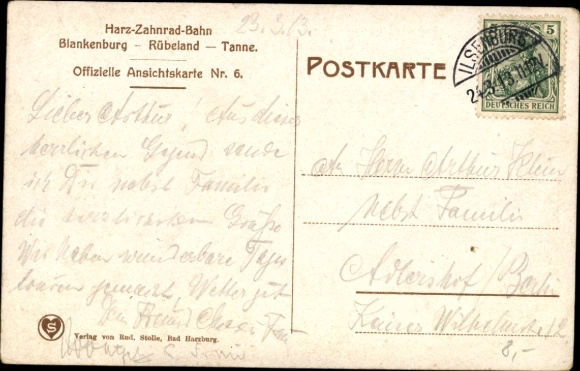 Harz-Zahnrad-Bahn
Blankenburg — Rübeland — Tanne.
Offizielle Ansichtskarte Nr. 6.
23.3.13.
POSTKARTE
ILSENBURG
5
DEUTSCHES REICH
Lieber Arthur! Aus dieser
herrlichen Gegend sende
ich Dir nebst Familie
die herzlichsten Grüße
Wir haben wunderbare Tages
touren gemacht, Wetter gut
Dein Freund
An Herrn Arthur
nebst Familie
Adlershof / Berlin
Kaiser Wilhelmstr.
8,-
S
Verlag von Rud. Stolle, Bad Harzburg.